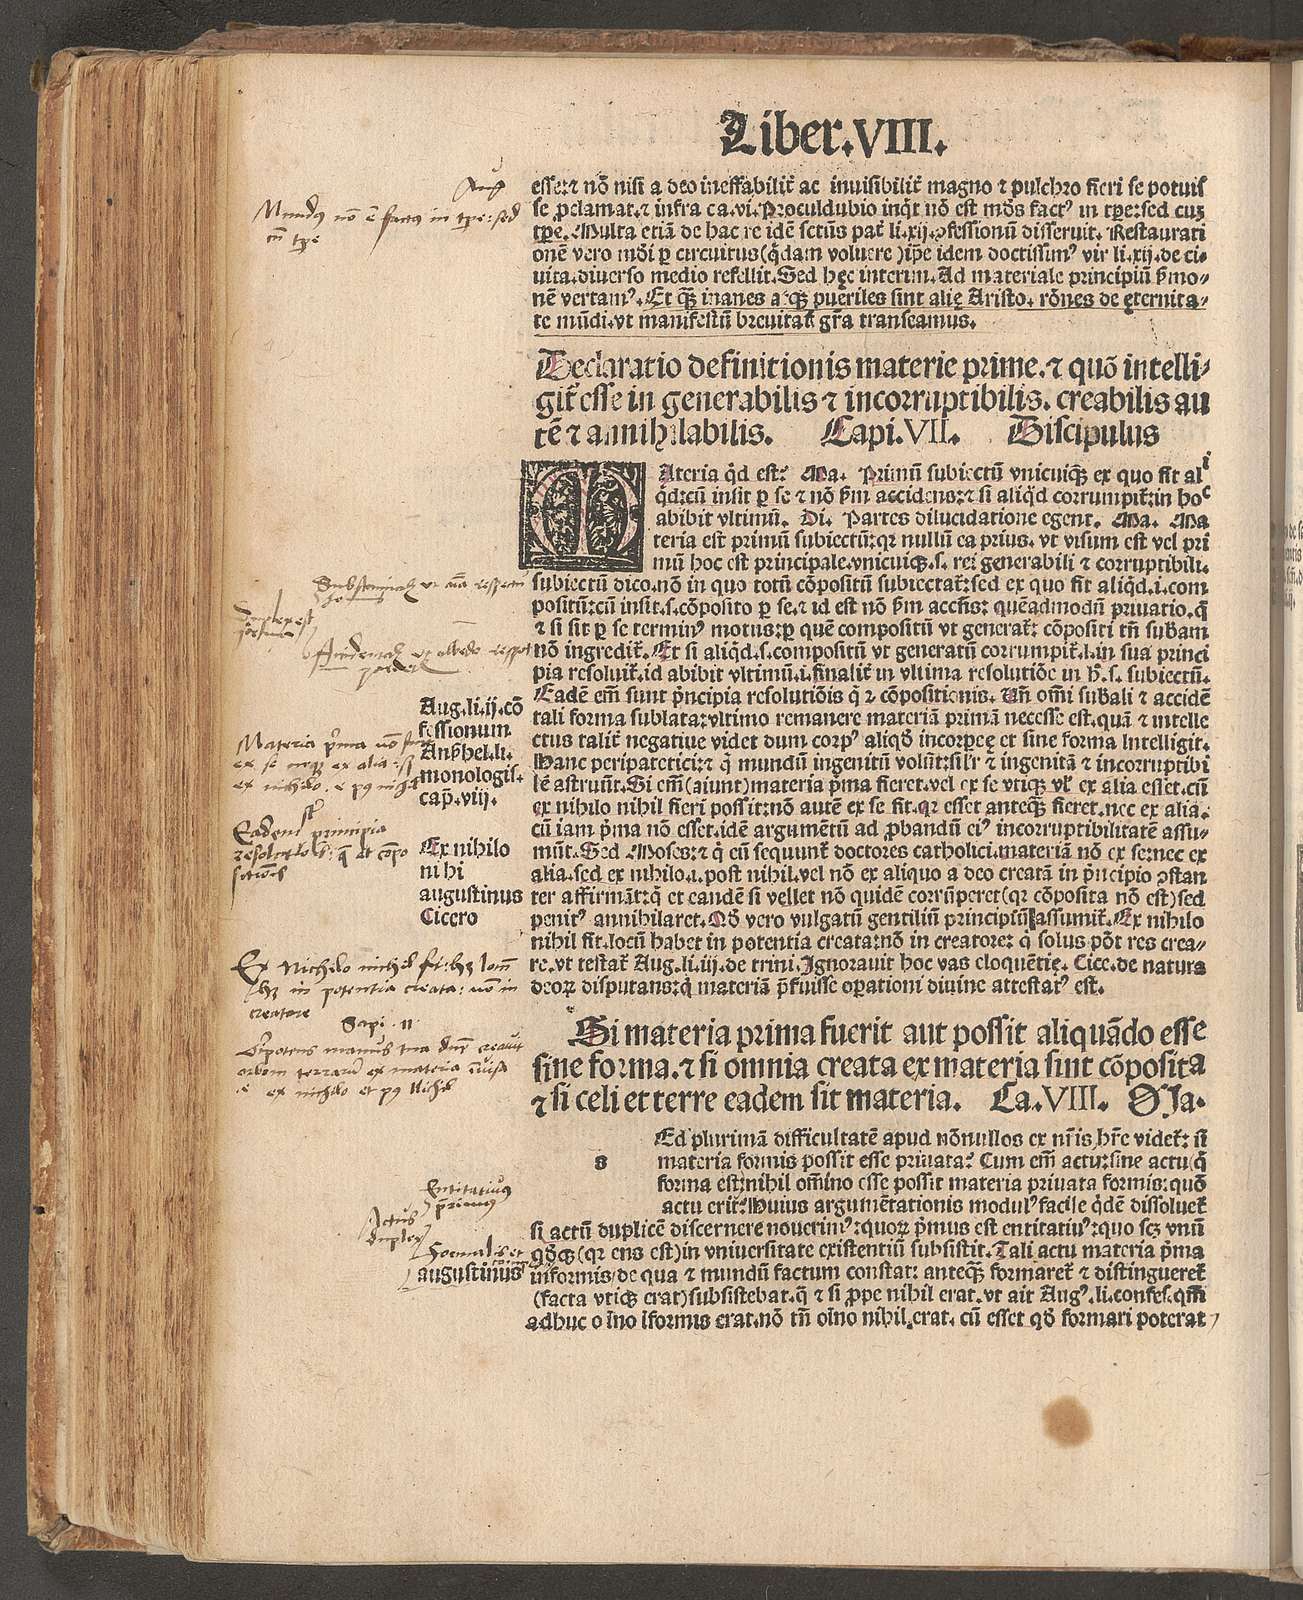 Liber.VIII.
esse:⁊ nō nisi a deo ineffabilit̃ ac inuisibilit̃ magno ⁊ pulchro fieri se potuis
se ꝓclamat.⁊ infra ca.vi.Proculdubio inq̇t nō est mūdꝰ factꝰ in tp̄e:sed cuꝫ
tp̄e.Multa etiā de hac re idē sctūs pat̃ li.xij.ꝯfessionū disseruit. Restaurati
onē vero mūdi ꝑ circuitus(q̇dam voluere)ip̄e idem doctissimꝰ vir li.xij.de ci-
uita.diuerso medio refellit.Sed hęc interim.Ad materiale principiū ẜmo-
nē vertamꝰ.Et q̄ꝫ inanes atqꝫ pueriles sint alię Aristo. rōnes de ęternita-
te mūdi.vt manifestū breuitat̃ gr̄a transeamus.
Aug
Mundꝰ nō ē factꝰ in tp̄e: sed
cū tp̄e
Declaratio definitionis materie prime.⁊ quō intelli-
git̃ esse in generabilis ⁊ incorruptibilis. creabilis au
tē ⁊ annihilabilis. Capi.VII. Discipulus
MAteria q̇d est? Ma. Primū subiectū vnicuiqꝫ ex quo fit aliꝗ
q̇d:cū insit ꝑ se ⁊ nō ẜm accidens:⁊ si aliq̇d corrumpit̃:in hoc
abibit vltimū. Di. Partes dilucidatione egent. Ma. Ma
teria est primū subiectū:qꝛ nullū ea prius. vt visum est vel pri
mū hoc est principale.vnicuiqꝫ.s. rei generabili ⁊ corruptibili.
subiectū dico.nō in quo totū cōpositū subiectat̃:sed ex quo fit aliq̇d.i.com
positū:cū insit.s.cōposito ꝑ se.⁊ id est nō ẜm accn̄s: quēadmodū priuatio.q̄
⁊ si sit ꝑ se terminꝰ motus:ꝑ quē compositū vt generat̃: cōpositi tn̄ sub̄am
nō ingredit̃. Et si aliq̇d.s.compositū vt generatū corrumpit̃.i.in sua princi
pia resoluit̃.id abibit vltimū.i.finalit̃ in vltima resolutiōe in h̄.s. subiectū.
Eadē em̄ sunt p̄ncipia resolutiōis q̄ ⁊ cōpositionis. Vn̄ om̄i sub̄ali ⁊ accidē
tali forma sublata:vltimo remanere materiā primā necesse est.quā ⁊ intelle
ctus talit̃ negatiue videt dum corpꝰ aliqd̄ incorpeę et sine forma intelligit.
Hanc peripatetici:⁊ q̇ mundū ingenitū volūt:sil̄r ⁊ ingenitā ⁊ incorruptibi
lē astruūt.Si em̄(aiunt)materia p̄ma fieret.vel ex se vtiqꝫ vl̄ ex alia esset.cū
ex nihilo nihil fieri possit:nō autē ex se fit.qꝛ esset anteqꝫ fieret.nec ex alia.
cū iam p̄ma nō esset.idē argumētū ad ꝓbandū eiꝰ incorruptibilitatē assu-
mūt.Sed Moses:⁊ q̇ eū sequunt̃ doctores catholici.materiā nō ex se:nec ex
alia.sed ex nihilo.i.post nihil.vel nō ex aliquo a deo creatā in p̄ncipio ꝯstan
ter affirmāt:q̇ et eandē si vellet nō quidē corrūperet(qꝛ cōposita nō est)sed
penitꝰ annihilaret.Nō vero vulgatū gentiliū principiū assumit̃.Ex nihilo
nihil fit.locū habet in potentia creata:nō in creatore: q̇ solus pōt res crea-
re.vt testat̃ Aug.li.iij.de trini.Ignorauit hoc vas eloquētię. Cice.de natura
deoꝝ disputans:q̇ materiā p̄fuisse operationi diuine attestatꝰ est.
Substantial
Accidental
Aug.li.ij.cō
fessionum
Anshel.li.
monologis.
cap̄.viij.
Materia p̄ma nō
ex se neqꝫ ex alia:
ex nichilo
Eadem principia
resolutiōis q̄ et compo
sitiōis
Ex nihilo
nihi
augustinus
Cicero
Ex Nichilo nichil fit: hꝫ locū
in potentia creata: nō in
creatore
Sapi. 11
Omnipotens manus tua creauit
orbem terrarū ex materia inuisa
ex nichilo et post Nichil
Si materia prima fuerit aut possit aliquādo esse
sine forma.⁊ si omnia creata ex materia sint cōposita
⁊ si celi et terre eadem sit materia. Ca.VIII. Ma.
s
Ed plurimā difficultatē apud nōnullos ex nr̄is hr̄e videt̃: si
materia formis possit esse priuata? Cum em̄ actu:sine actu(q̄
forma est:nihil om̄ino esse possit materia priuata formis:quō
actu erit?Huius argumētationis modulꝰfacile q̇dē dissoluet̃
si actū duplicē discernere nouerimꝰ:quoꝝ p̄mus est entitatiuꝰ:quo scꝫ vnū
qd̄qꝫ(qꝛ ens est)in vniuersitate existentiū subsistit.Tali actu materia p̄ma
informis/de qua ⁊ mundū factum constat: anteqꝫ formaret̃ ⁊ distingueret̃
(facta vtiqꝫ erat)subsistebat.q̄ ⁊ si ꝓpe nihil erat.vt ait Augꝰ.li.confes.qm̄
adhuc oīno īformis erat.nō tn̄ oīno nihil.erat. cū esset qd̄ formari poterat
Entitatiuus
primus
Actus
duplex
Formalis et
augustinus